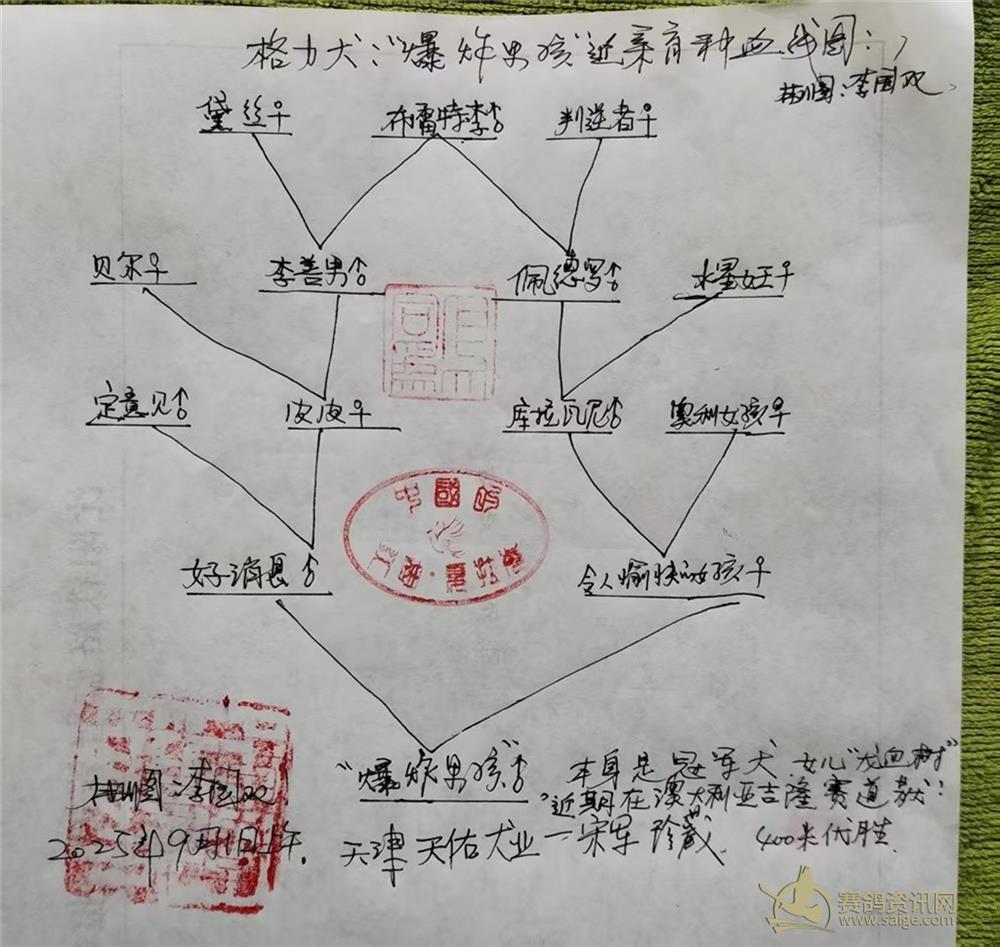 格力犬:“爆炸男孩”近亲育种血线图:
制图:李国双
黛丝♀ 布雷特李♂ 判逆者♀
贝尔♀ 李善男♂ 佩德罗♂ 水星女王♀
定意见♂ 皮皮♀ 库拉瓦尼♂ 奥利女孩♀
中國
好消息♂ 令人愉快的女孩♀
“爆炸男孩”♂ 本身是冠军犬 女儿“龙血树”
近期在澳大利亚吉隆赛道获:
制图:李国双
2025年9月1日上午. 天津天佑犬业一宋军珍藏. 400米优胜.
赛鸽资讯网
www.saige.com